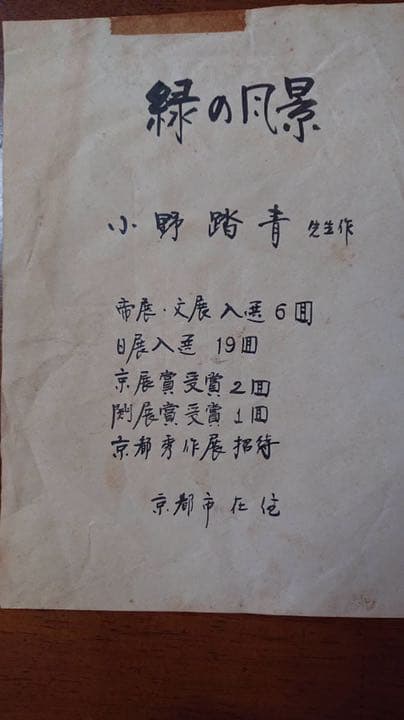 緑の風景
小野踏青 先生作
帝展・文展入選6回
日展入選 19回
京展賞受賞2回
関展賞受賞1回
京都秀作展招待
京都市在住